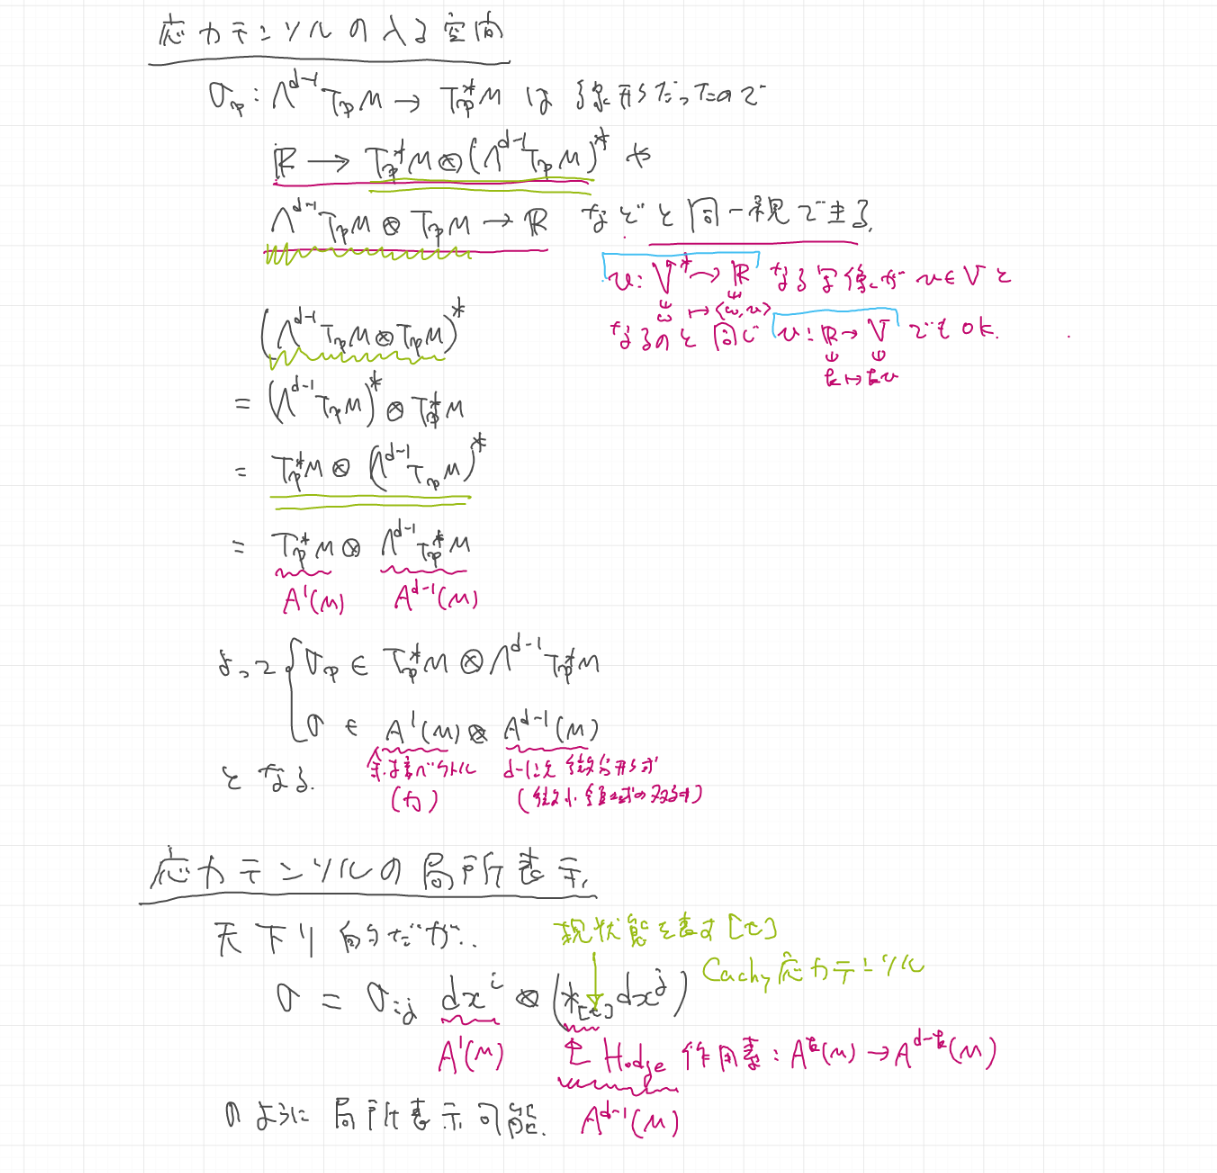 応力テンソルの入る空間
σ_p : Λ^{d-1} T_pM → T_p^*M は 線形だったので
ℝ → T_p^*M ⊗ (Λ^{d-1} T_pM)^* や
Λ^{d-1} T_pM ⊗ T_pM → ℝ などと同一視できる.
v : V^* → ℝ なる写像が v ∈ V と
ω ↦ ⟨ω, v⟩
なるのと同じ v : ℝ → V でも OK.
k ↦ kv
(Λ^{d-1} T_pM ⊗ T_pM)^*
= (Λ^{d-1} T_pM)^* ⊗ T_p^*M
= T_p^*M ⊗ (Λ^{d-1} T_pM)^*
= T_p^*M ⊗ Λ^{d-1} T_p^*M
A^1(M) A^{d-1}(M)
よって { σ_p ∈ T_p^*M ⊗ Λ^{d-1} T_p^*M
σ ∈ A^1(M) ⊗ A^{d-1}(M)
となる. 余接ベクトル d-1次 微分形式
(力) (微小
応力テンソルの局所表示
天下り的だが.. 現状態を表す [t]
Cachy 応力テンソル
σ = σ_{ij} dx^i ⊗ (*_{[t]} dx^j)
A^1(M) Hodge 作用素 : A^k(M) → A^{d-k}(M)
のように局所表示可能. A^{d-1}(M)